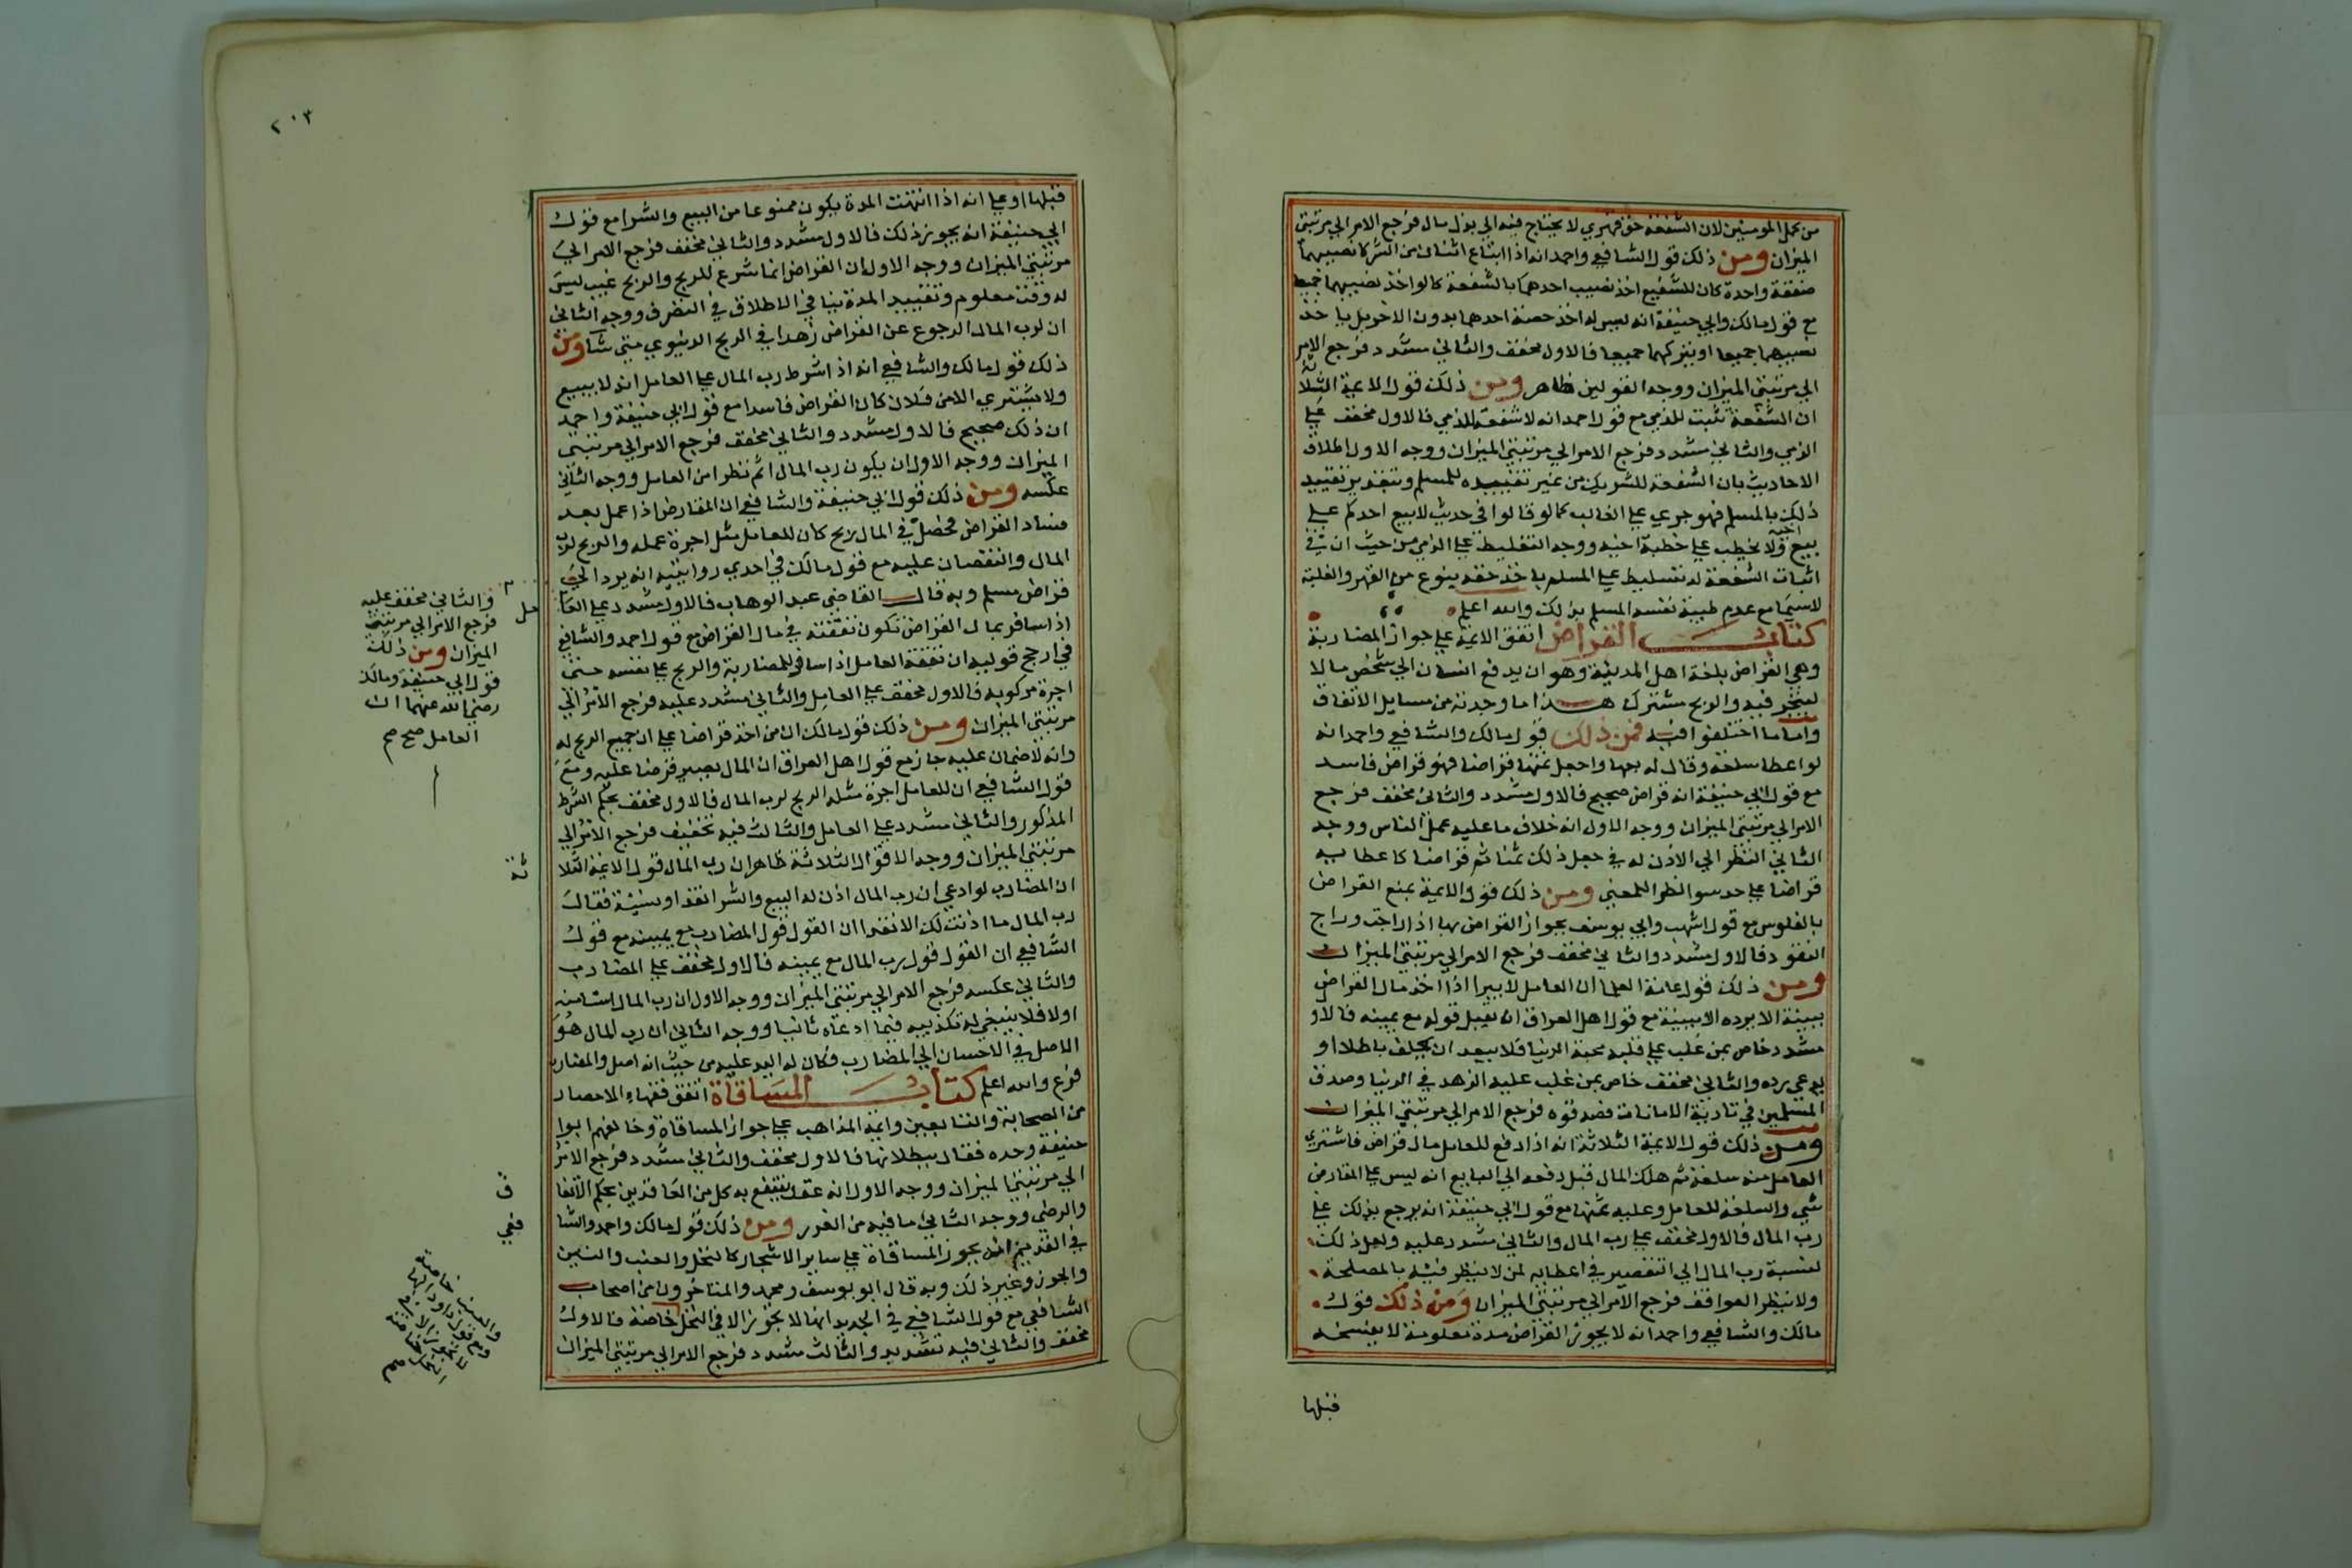 من كمل المومنين لان الشفعة حق قهري لا يحتاج فيه الي بذل مال فرجع الامر الي مرتبتي
الميزان ومن ذلك قول الشافعي واحمد انه اذا ابتاع اثنان من الشركا نصيبهما
صفقة واحدة كان للشفيع اخذ نصيب احدهما بالشفعة كما لو اخذ نصيبهما جميعا
مع قول مالك وابي حنيفة انه ليس له اخذ حصة احدهما بدون الاخر بل ياخذ
نصيبهما جميعا او يتركهما جميعا فالاول مخفف والثاني مشدد فرجع الامر
الي مرتبتي الميزان ووجه القولين ظاهر ومن ذلك قول الايمة الثلاثة
ان الشفعة تثبت للذمي مع قول احمد انه لا شفعة للذمي فالاول مخفف علي
الذمي والثاني مشدد فرجع الامر الي مرتبتي الميزان ووجه الاول اطلاق
الاحاديث بان الشفعة للشريك من غير تقييده للمسلم وبتقدير تقييد
ذلك بالمسلم فهو جري علي الغالب كما لو قالوا في حديث لا يبيع احدكم علي
بيع اخيه ولا يخطب علي خطبة اخيه ووجه التغليظ علي الذمي من حيث ان في
اثبات الشفعة له تسليط علي المسلم باخذ حقه بنوع من القهر والغلبة
لاسيما مع عدم طيبة نفسه المسلم بذلك والله اعلم
كتاب القراض اتفق الايمة علي جواز المضاربة
وهي القراض بلغة اهل المدينة وهو ان يدفع انسان الي شخص مالا
ليتجر فيه والربح مشترك هذا ما وجدته من مسايل الاتفاق
واما ما اختلفوا فيه فمن ذلك قول مالك والشافعي واحمد انه
لو اعطاه سلعة وقال له بعها واجعل ثمنها قراضا فهو قراض فاسد
مع قول ابي حنيفة انه قراض صحيح فالاول مشدد والثاني مخفف فرجع
الامر الي مرتبتي الميزان ووجه الاول انه خلاف ما عليه عمل الناس ووجه
الثاني النظر الي الاذن له في جعل ذلك ثمنا ثم قراضا كاعطايه
قراضا علي حد سوا نظرا للمعني ومن ذلك قول الايمة بمنع القراض
بالفلوس مع قول اشهب وابي يوسف بجواز القراض بها اذا راجت وراج
النقود فالاول مشدد والثاني مخفف فرجع الامر الي مرتبتي الميزان
ومن ذلك قول عامة العلما ان العامل لا يبرا اذا اخذ مال القراض
ببينة الا برده الا ببينة مع قول اهل العراق ان يقبل قوله مع يمينه فالاول
مشدد خاص بمن غلب علي قلبه محبة الدنيا فلا يبعد ان يحلف باطلا او
يدعي رده والثاني مخفف خاص بمن غلب عليه الزهد في الدنيا وصدق
المسلمين في تادية الامانات فصدقوه فرجع الامر الي مرتبتي الميزان
ومن ذلك قول الايمة الثلاثة انه اذا دفع للعامل مال قراض فاشتري
العامل منه سلعة ثم هلك المال قبل دفعه الي البايع انه ليس علي المقارض
شي والسلعة للعامل وعليه ثمنها مع قول ابي حنيفة انه يرجع بذلك علي
رب المال فالاول مخفف علي رب المال والثاني مشدد عليه ولعل ذلك
لنسبة رب المال الي التقصير في اعطايه لمن لا ينظر فيه بالمصلحة
ولا ينظر العواقب فرجع الامر الي مرتبتي الميزان ومن ذلك قول
مالك والشافعي واحمد انه لا يجوز القراض مدة معلومة لا يفسخه
قبلها
٢٠٣
قبلها او علي انه اذا انتهت المدة يكون ممنوعا من البيع والشرا مع قول
ابي حنيفة انه يجوز ذلك فالاول مشدد والثاني مخفف فرجع الامر الي
مرتبتي الميزان ووجه الاول ان القراض انما شرع للربح والربح غيب ليس
له وقت معلوم وتقييد المدة ينافي الاطلاق في التصرف ووجه الثاني
ان لرب المال الرجوع عن القراض زهدا في الربح الدنيوي متي شا ومن
ذلك قول مالك والشافعي انه اذا شرط رب المال علي العامل انه لا يبيع
ولا يشتري الا من فلان كان القراض فاسدا مع قول ابي حنيفة واحمد
ان ذلك صحيح فالاول مشدد والثاني مخفف فرجع الامر الي مرتبتي
الميزان ووجه الاول ان يكون رب المال اتم نظرا من العامل ووجه الثاني
عكسه ومن ذلك قول ابي حنيفة والشافعي ان المقارض اذا عمل بعد
فساد القراض فحصل في المال ربح كان للعامل مثل اجرة عمله والربح لرب
المال والنقصان عليه مع قول مالك في احدي روايتيه انه يرد الي
قراض مسلم وبه قال القاضي عبد الوهاب فالاول مشدد علي العا
اذا سافر بمال القراض تكون نفقته في مال القراض مع قول احمد والشافعي
في ارجح قوليه ان نفقة العامل اذا سافر للمضاربة والربح علي نفسه حتي
اجرة مركوبه فالاول مخفف علي العامل والثاني مشدد عليه فرجع الامر الي
مرتبتي الميزان ومن ذلك قول مالك ان من اخذ قراضا علي ان جميع الربح له
وانه لا ضمان عليه جاز مع قول اهل العراق ان المال يصير قرضا عليه ومع
قول الشافعي ان للعامل اجرة مثله الربح لرب المال فالاول مخفف بحكم الشرط
المذكور والثاني مشدد علي العامل والثالث فيه تخفيف فرجع الامر الي
مرتبتي الميزان ووجه الاقوال الثلاثة ظاهر ان رب المال قول الايمة الثلا
ان المضارب لو ادعي ان رب المال اذن له البيع والشرا نقدا ونسيئة فقال
رب المال ما اذنت لك الا نقدا ان القول قول المضارب مع يمينه مع قول
الشافعي ان القول قول رب المال مع يمينه فالاول مخفف علي المضارب
والثاني عكسه فرجع الامر الي مرتبتي الميزان ووجه الاول ان رب المال استامنه
اولا فلا ينبغي له تكذيبه فيما ادعاه ثانيا ووجه الثاني ان رب المال هو
الاصل في الاحسان الي المضارب فكان له اليد عليه من حيث انه اصل والمضارب
فرع والله اعلم كتاب المساقاة اتفق فقهاء الامصار
من الصحابة والتابعين وايمة المذاهب علي جواز المساقاة وخالفهم ابوا
حنيفة وحده فقال ببطلانها فالاول مخفف والثاني مشدد فرجع الامر
الي مرتبتي الميزان ووجه الاول انه عقد ينتفع به كل من العاقدين بحكم الاتفا
والرضي ووجه الثاني ما فيه من الغرر ومن ذلك قول مالك واحمد والشا
في القديم انه يجوز المساقاة علي ساير الاشجار كالنخل والعنب والتين
والجوز وغير ذلك وبه قال ابو يوسف ومحمد والمتاخرون من اصحاب
الشافعي مع قول الشافعي في الجديد انها لا تجوز الا في النخل خاصة فالاول
مخفف والثاني فيه تشديد والثالث مشدد فرجع الامر الي مرتبتي الميزان
مل
والثاني مخفف عليه
فرجع الامر الي مرتبتي
الميزان ومن ذلك
قول ابي حنيفة ومالك
رضي الله عنهما ان
العامل صح صح
ثة
ق
فعي
والعنب خاصة
ومع قول داود انها
لا تجوز الا في
النخل خاصة
صح